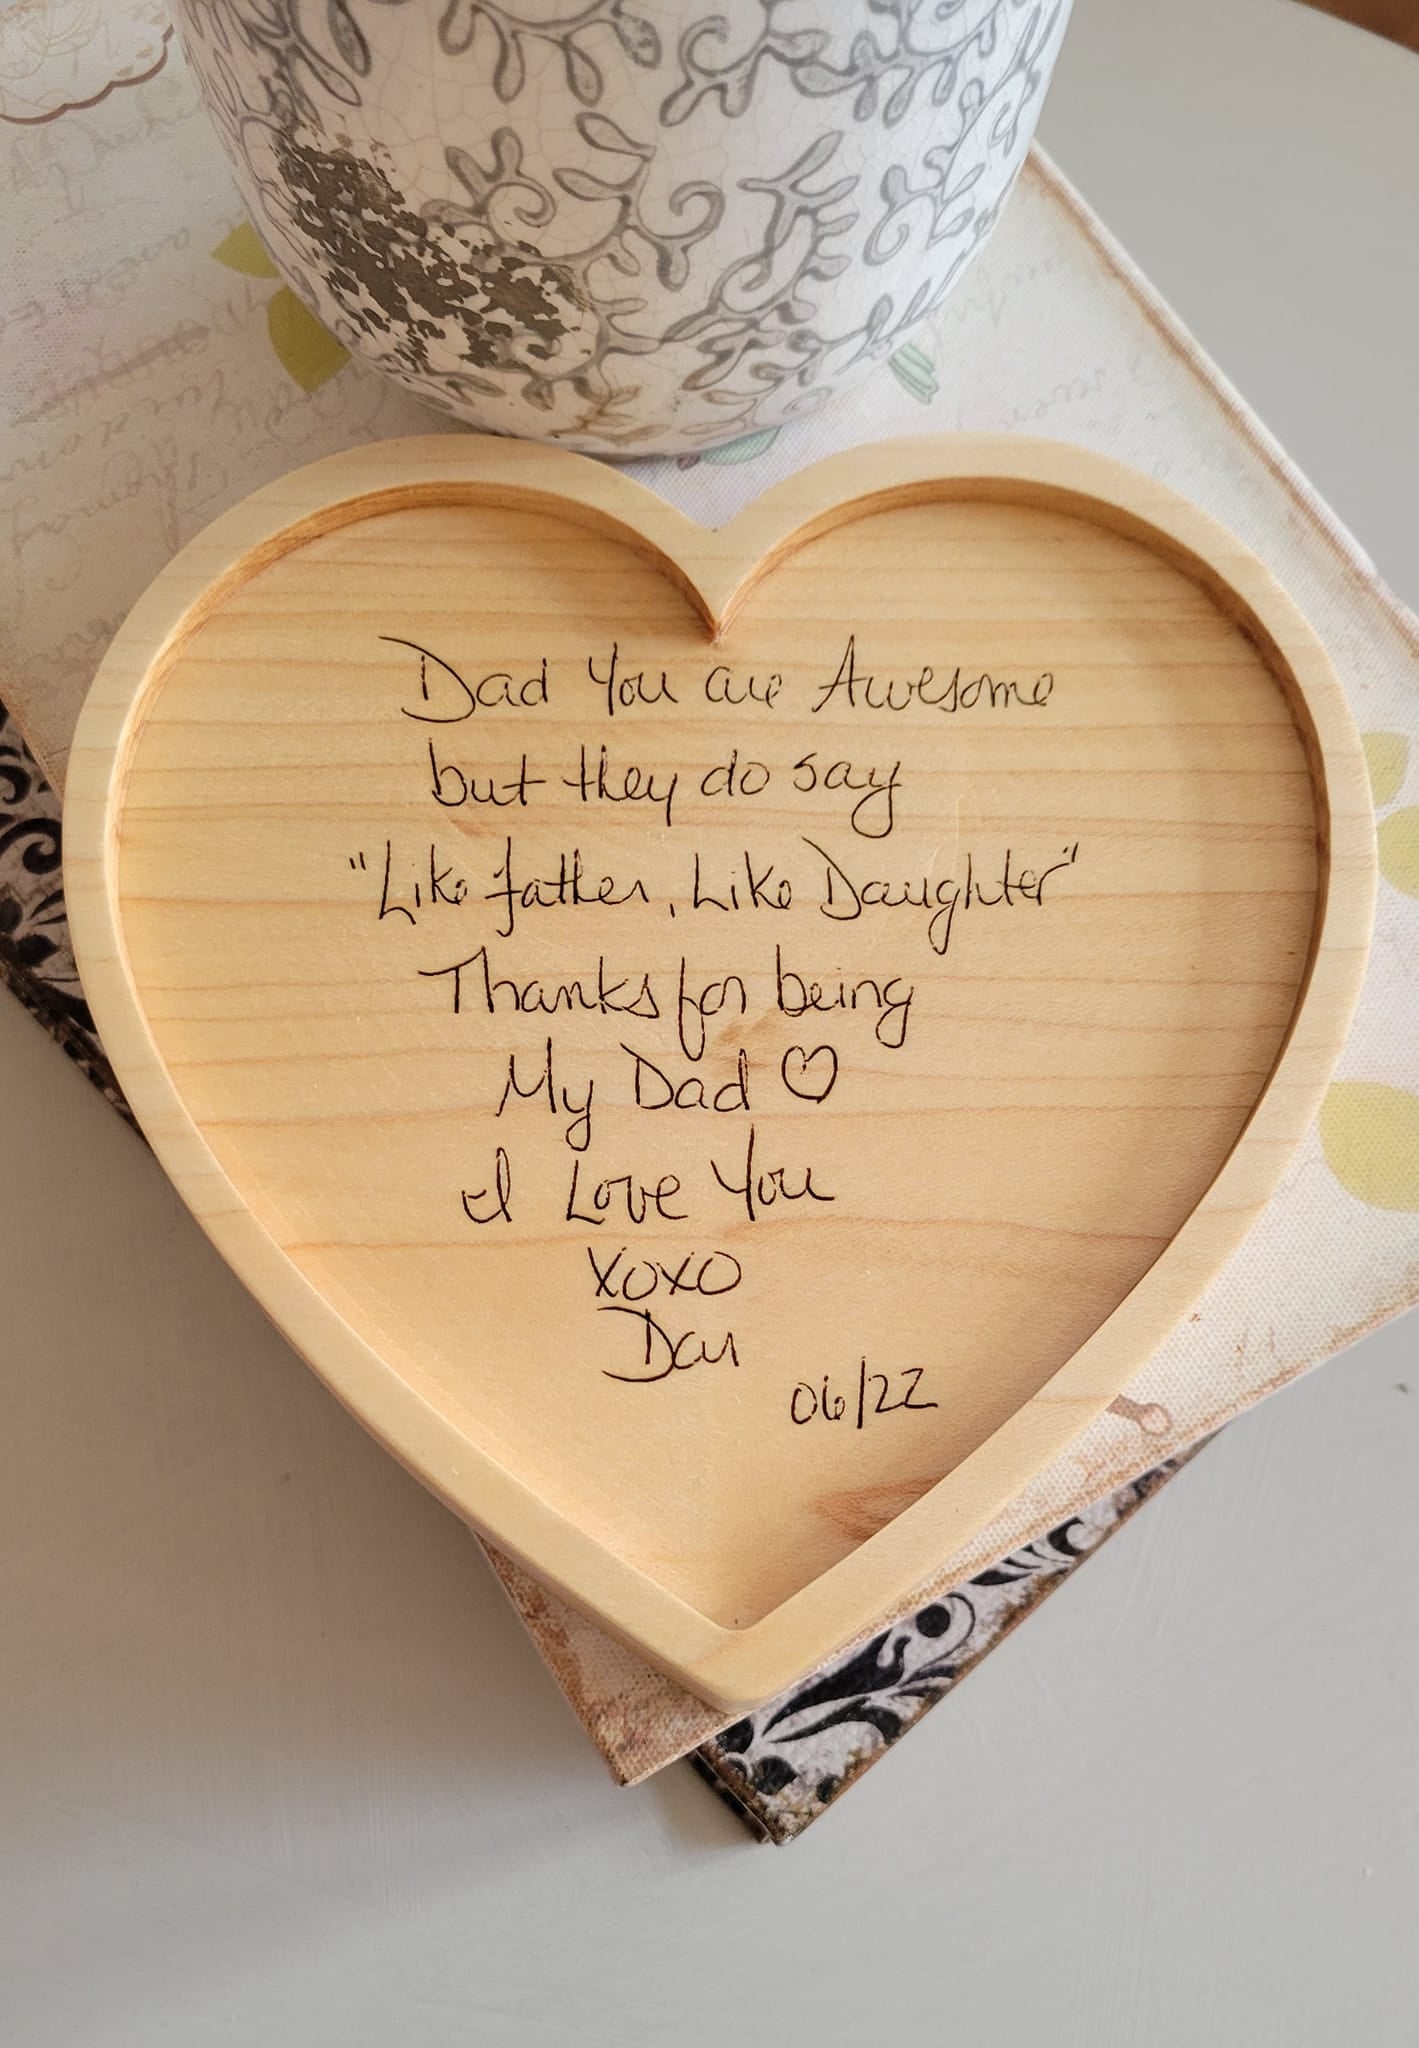 Dad You are Awesome
but they do say
"Like father, Like Daughter"
Thanks for being
My Dad ♡
I Love You
XOXO
06/22